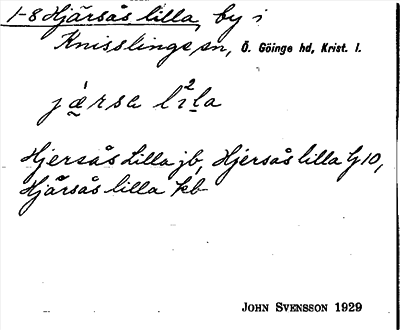 1-8 Hjärsås lilla, by i
Knisslinge sn, Ö. Göinge hd, Krist. l.
Hjersås Lilla jb, Hjersås lilla G10,
Hjärsås lilla kb
JOHN SVENSSON 1929